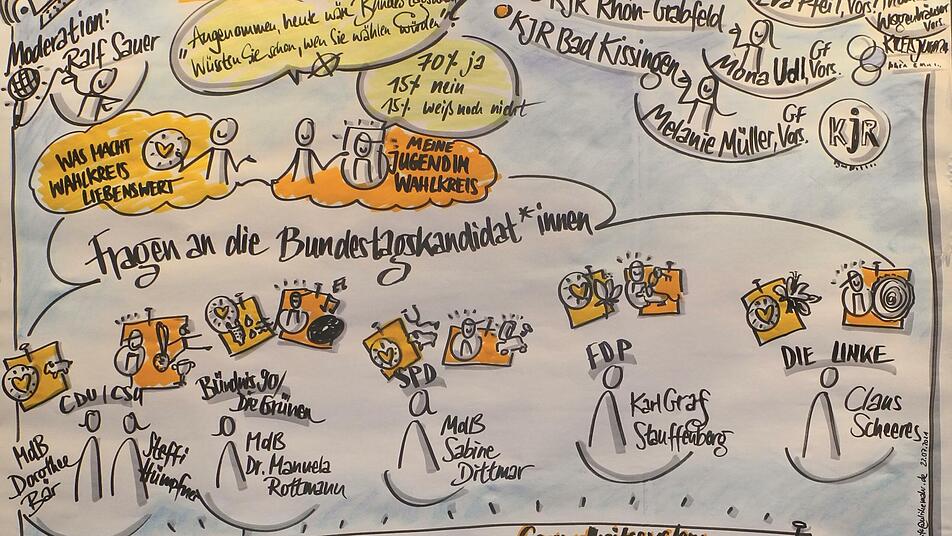 Moderation:
Ralf Sauer
"Angenommen, heute wär' Bundestagswahl
Wüssten Sie schon, wen Sie wählen würden"
70% ja
15% nein
15% weiß noch nicht
KJR Rhön-Grabfeld
KJR Bad Kissingen
Eva Pfeil, Vors.
GF
Mona Udl, Vors.
GF
Melanie Müller, Vors.
KJR
WAS MACHT
WAHLKREIS
LIEBENSWERT
MEINE
JUGEND IM
WAHLKREIS
Fragen an die Bundestagskandidat*innen
CDU/CSU
MdB
Dorothee
Bär
Steffi
Hümpfner
Bündnis 90/
Die Grünen
MdB
Dr. Manuela
Rottmann
SPD
MdB
Sabine
Dittmar
FDP
Karl Graf
Stauffenberg
DIE LINKE
Claus
Scheeres